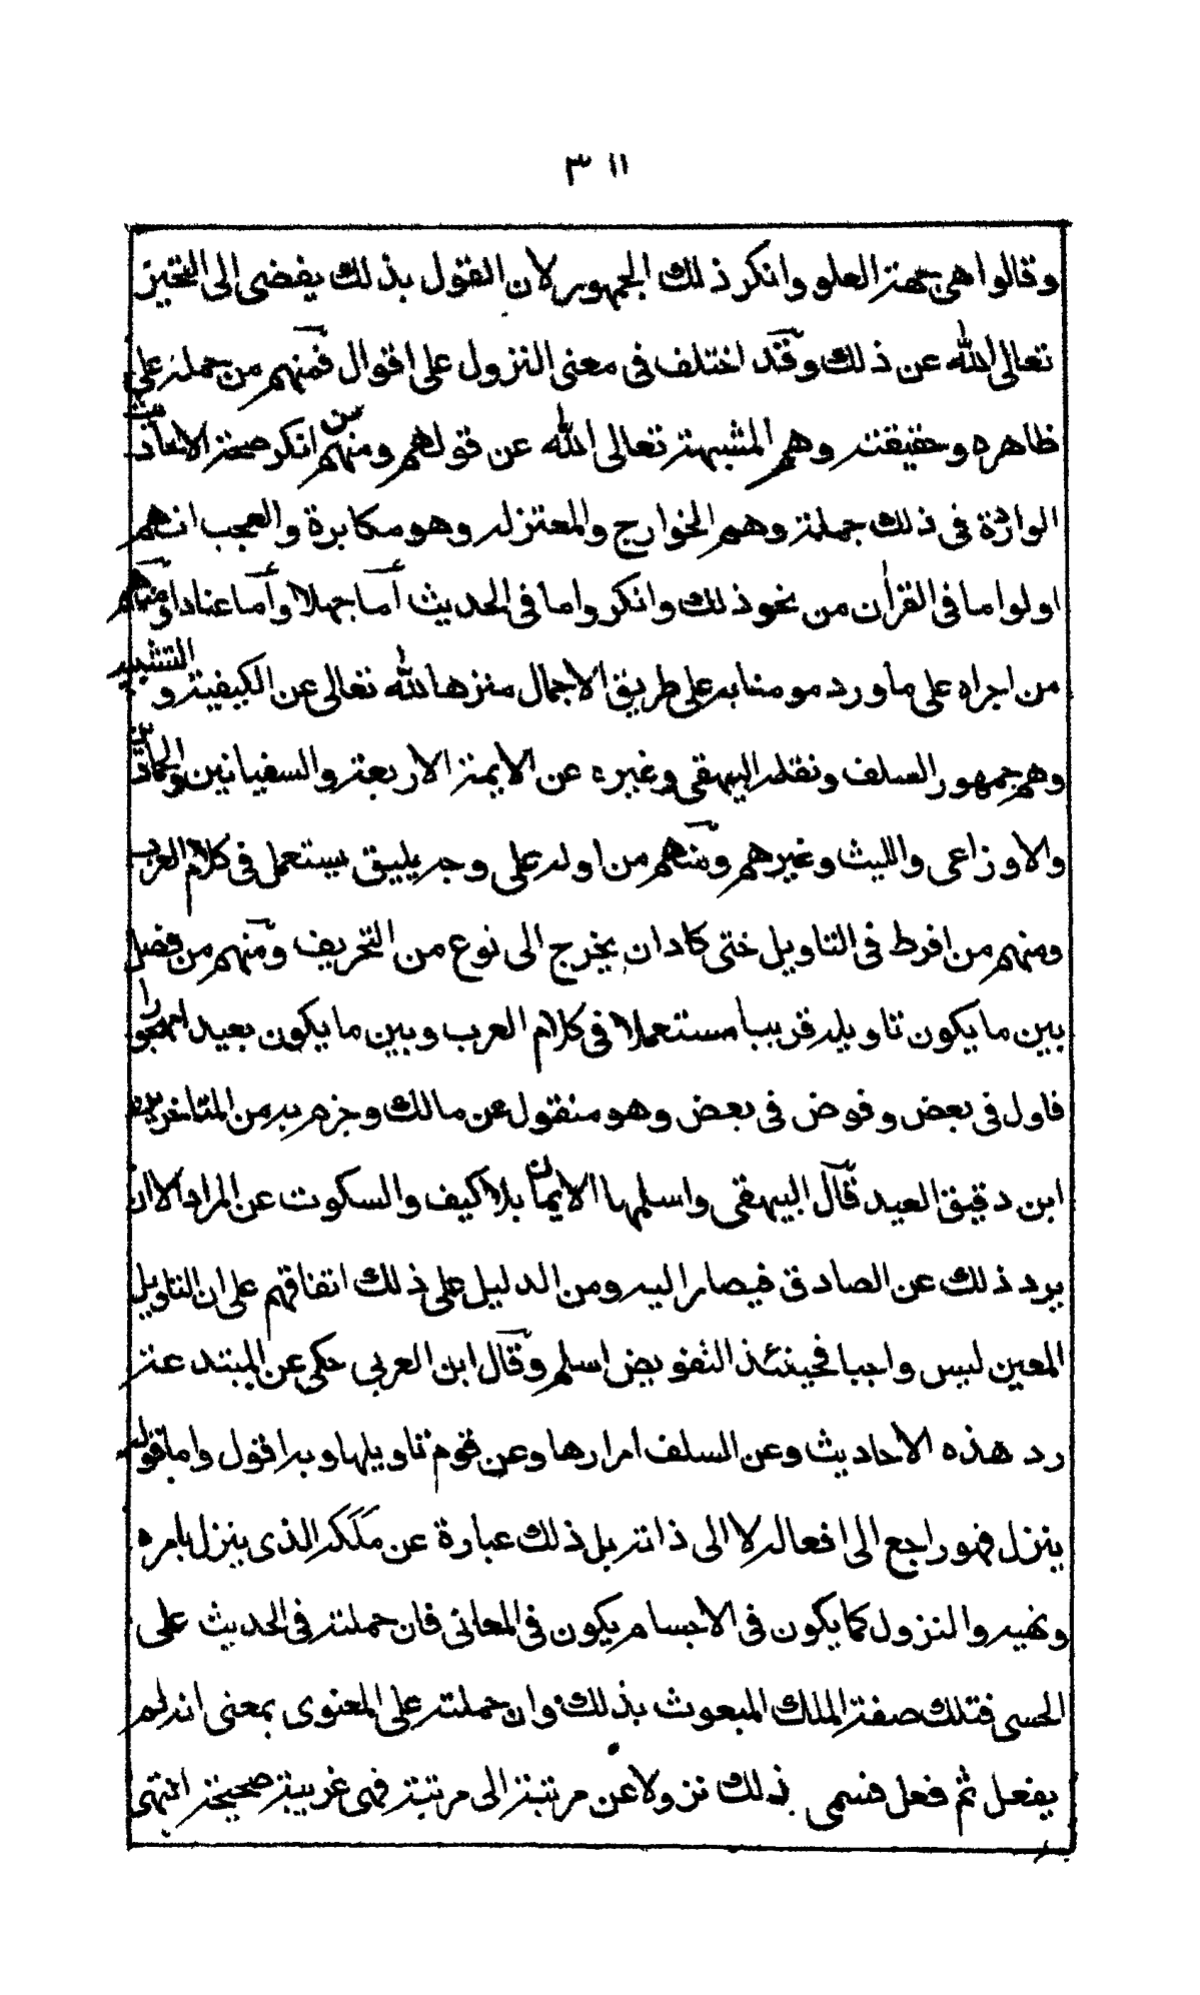 ٣١١
وقالوا هي جهة العلو وانكر ذلك الجمهور لان القول بذلك يفضى الى التحيز
تعالى الله عن ذلك وقد اختلف فى معنى النزول على اقوال فمنهم من حمله على
ظاهره وحقيقته وهم المشبهة تعالى الله عن قولهم ومنهم من انكر صحة الاحاديث
الواردة فى ذلك جملة وهم الخوارج والمعتزله وهو مكابرة والعجب انهم
اولوا ما فى القرأن من نحو ذلك وانكروا ما فى الحديث أما جهلا وأما عنادا ومنهم
من اجراه على ما ورد مومنا به على طريق الاجمال منزها لله تعالى عن الكيفية والتشبيه
وهم جمهور السلف ونقله البيهقى وغيره عن الايمة الاربعة والسفيانين والحمادين
والاوزاعى والليث وغيرهم ومنهم من اوله على وجه يليق يستعمل فى كلام العرب
ومنهم من افرط فى التاويل حتى كاد ان يخرج الى نوع من التحريف ومنهم من فصل
بين ما يكون تاويله قريبا مستعملا فى كلام العرب وبين ما يكون بعيدا مهجورا
فاول فى بعض وفوض فى بعض وهو منقول عن مالك وجزم به من المتاخرين
ابن دقيق العيد قال البيهقى واسلمها الايمان بلا كيف والسكوت عن المراد الا ان
يرد ذلك عن الصادق فيصار اليه ومن الدليل على ذلك اتفاقهم على ان التاويل
المعين ليس واجبا فحينئذ التفويض اسلم وقال ابن العربى حكى عن المبتدعة
رد هذه الاحاديث وعن السلف امرارها وعن قوم تاويلها وبه اقول واما قوله
ينزل فهو راجع الى افعاله لا الى ذاته بل ذلك عبارة عن ملكه الذى ينزل بامره
ونهيه والنزول كما يكون فى الاجسام يكون فى المعانى فان حملته فى الحديث على
الحسى فتلك صفة الملك المبعوث بذلك وان حملته على المعنوى بمعنى انه لم
يفعل ثم فعل فسمى ذلك نزولا عن مرتبة الى مرتبة فهى عربية صحيحة انتهى